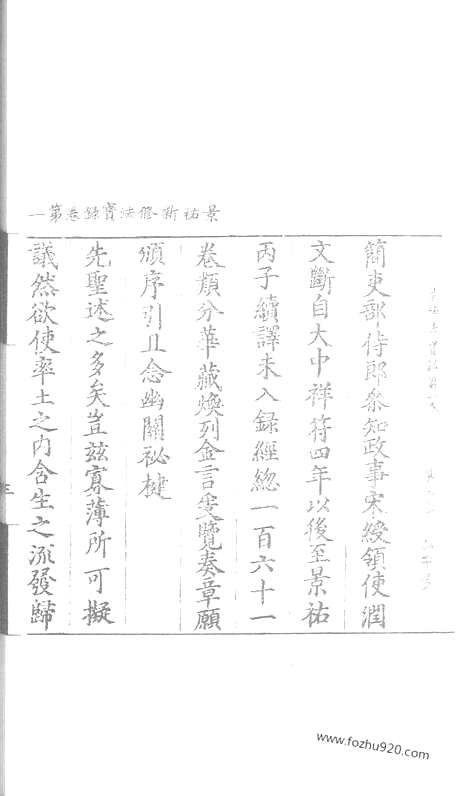 景祐新修法寶錄卷第一
簡吏部侍郎叅知政事宋綬領使潤
文斷自大中祥符四年以後至景祐
丙子續譯未入録經緫一百六十一
卷類分華藏煥列金言爰覽奏章願
頒序引且念幽關祕楗
先聖述之多矣豈兹寡薄所可擬
議然欲使率土之內含生之流發歸
三
www.fozhu920.com